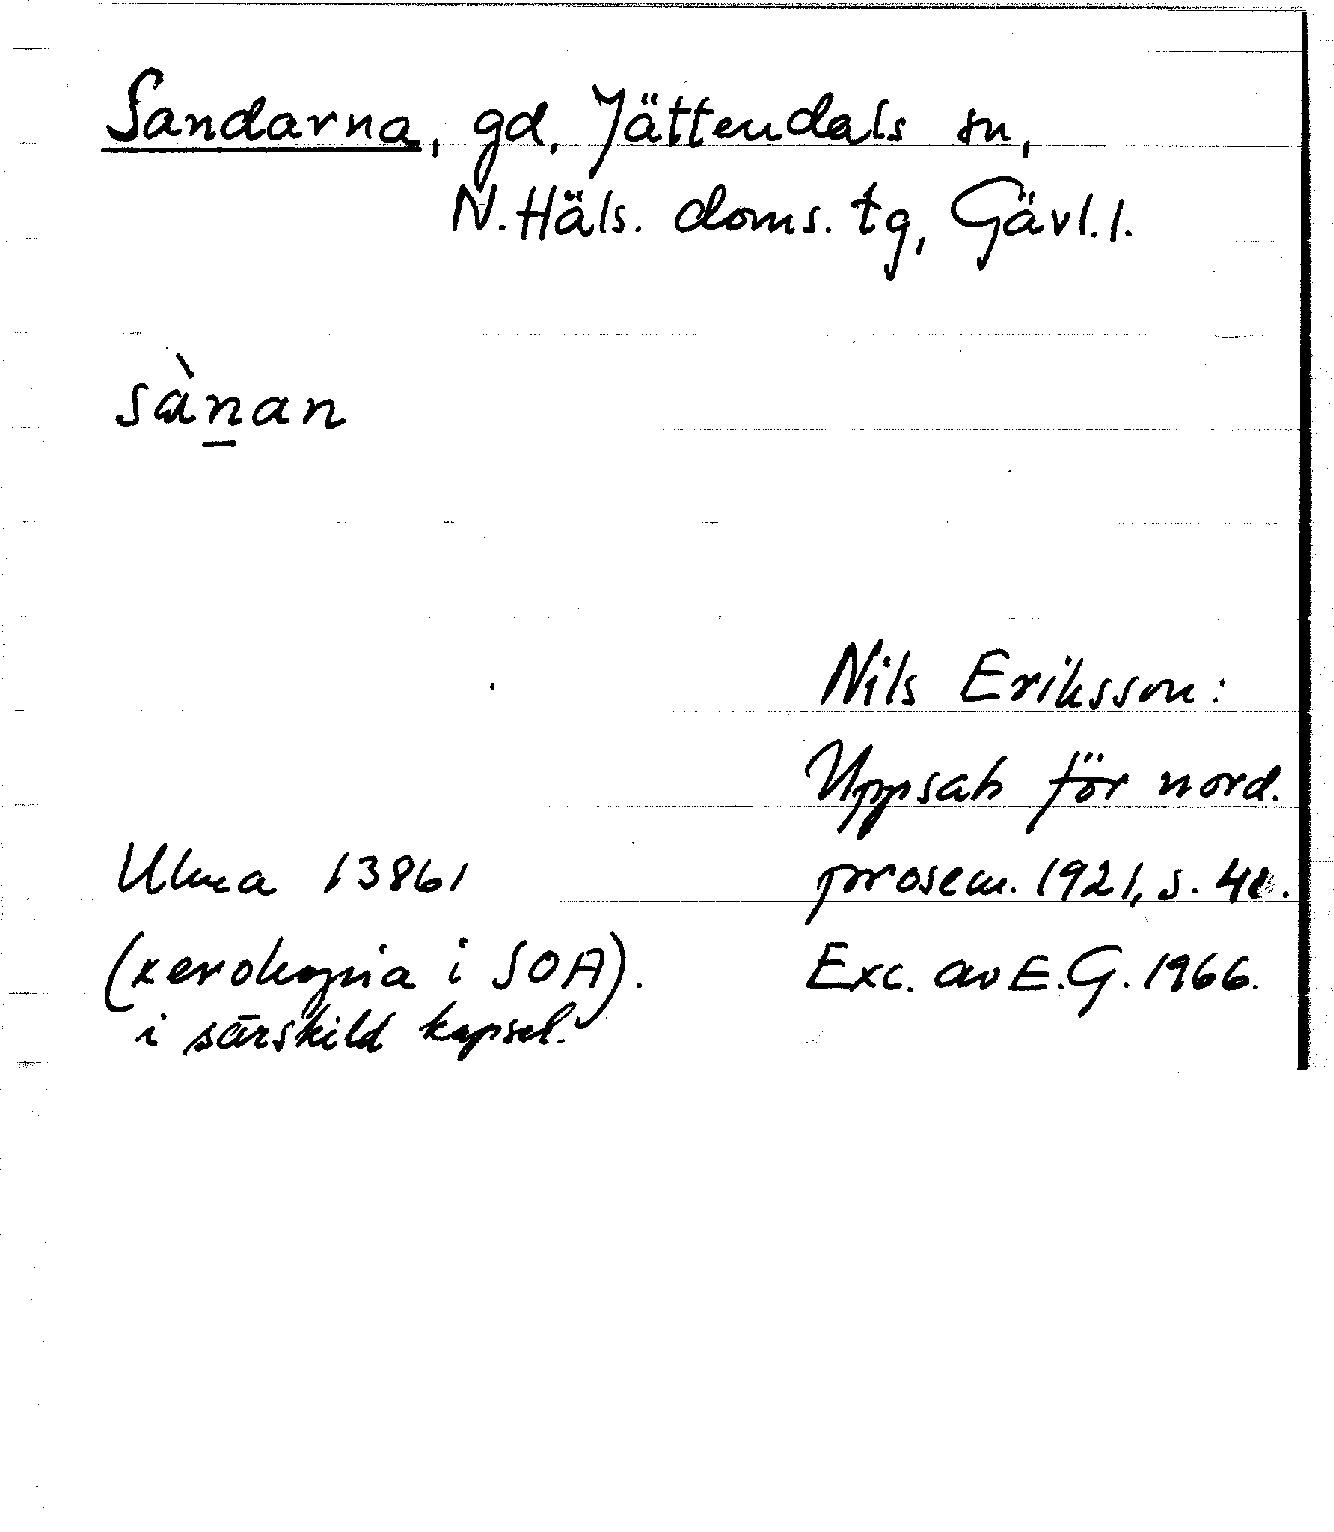 Sandarna, gd, Jättendals sn,
N. Häls. doms. tg, Gävl. l.
sànan
Nils Eriksson:
Uppsats för nord.
prosem. 1921, s.
Exc. av E.G. 1966.
Ulma 13861
(xerokopia i SOA).
i särskild kapsel.